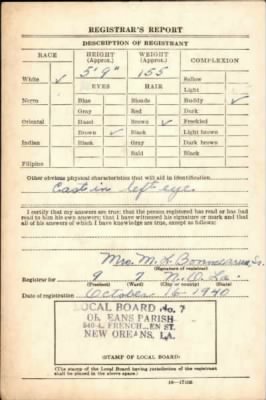 REGISTRAR'S REPORT
DESCRIPTION OF REGISTRANT
RACE HEIGHT (Approx.) WEIGHT (Approx.) COMPLEXION
White ✓ 5' 9" 155 Sallow
Light
EYES HAIR
Negro Blue Blonde Ruddy ✓
Gray Red Dark
Oriental Hazel Brown ✓ Freckled
Brown ✓ Black Light brown
Indian Black Gray Dark brown
Bald Black
Filipino
Other obvious physical characteristics that will aid in identification
Cast in left eye
I certify that my answers are true; that the person registered has read or has had
read to him his own answers; that I have witnessed his signature or mark and that
all of his answers of which I have knowledge are true, except as follows:
Mrs. M. L.
(Signature of registrar)
Registrar for 9 7 N.O. La.
(Precinct) (Ward) (City or county) (State)
Date of registration October 16 1940
LOCAL BOARD No. 7
ORLEANS PARISH
FRENCHMEN ST.
NEW ORLEANS, LA.
(STAMP OF LOCAL BOARD)
(The stamp of the Local Board having jurisdiction of the registrant
shall be placed in the above space.)